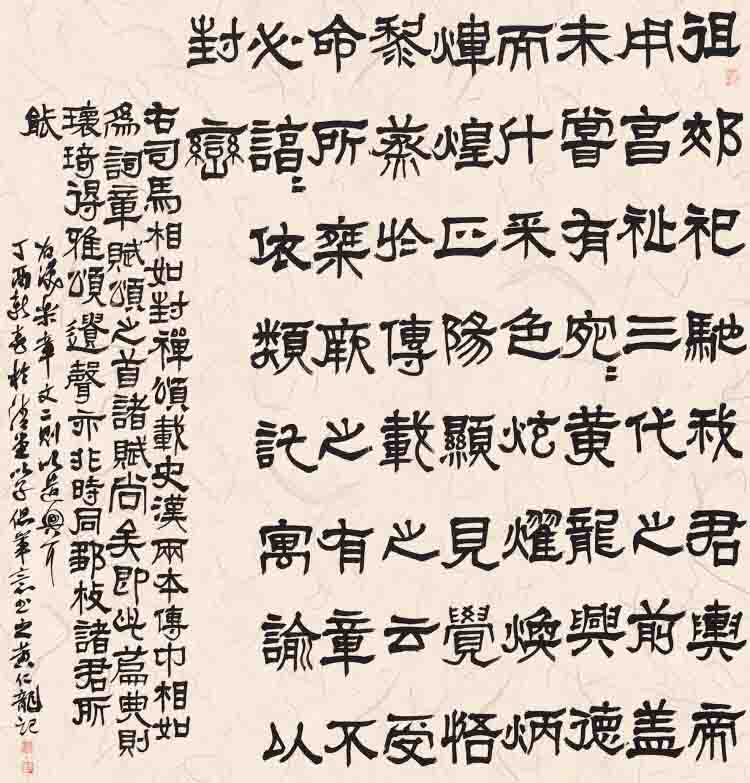 徂郊祀馳我君輿帝
用享祉三代之前蓋
未嘗有宛〻黃龍興德
而升采色炫燿煥炳
煇煌正陽顯見覺悟
黎蒸於傳載之云受
命所乘厥之有章不
必諄〻依類託寓諭以
封巒
右司馬相如封禪頌載史漢兩本傳中相如
為詞章賦頌之首諸賦尚矣即此篇典則
瓌琦得雅頌遺聲亦非時同鄒枚諸君所
能
右漢樂章文二則以遣興耳
丁酉新春於堂以筆意書之黃仁龍記